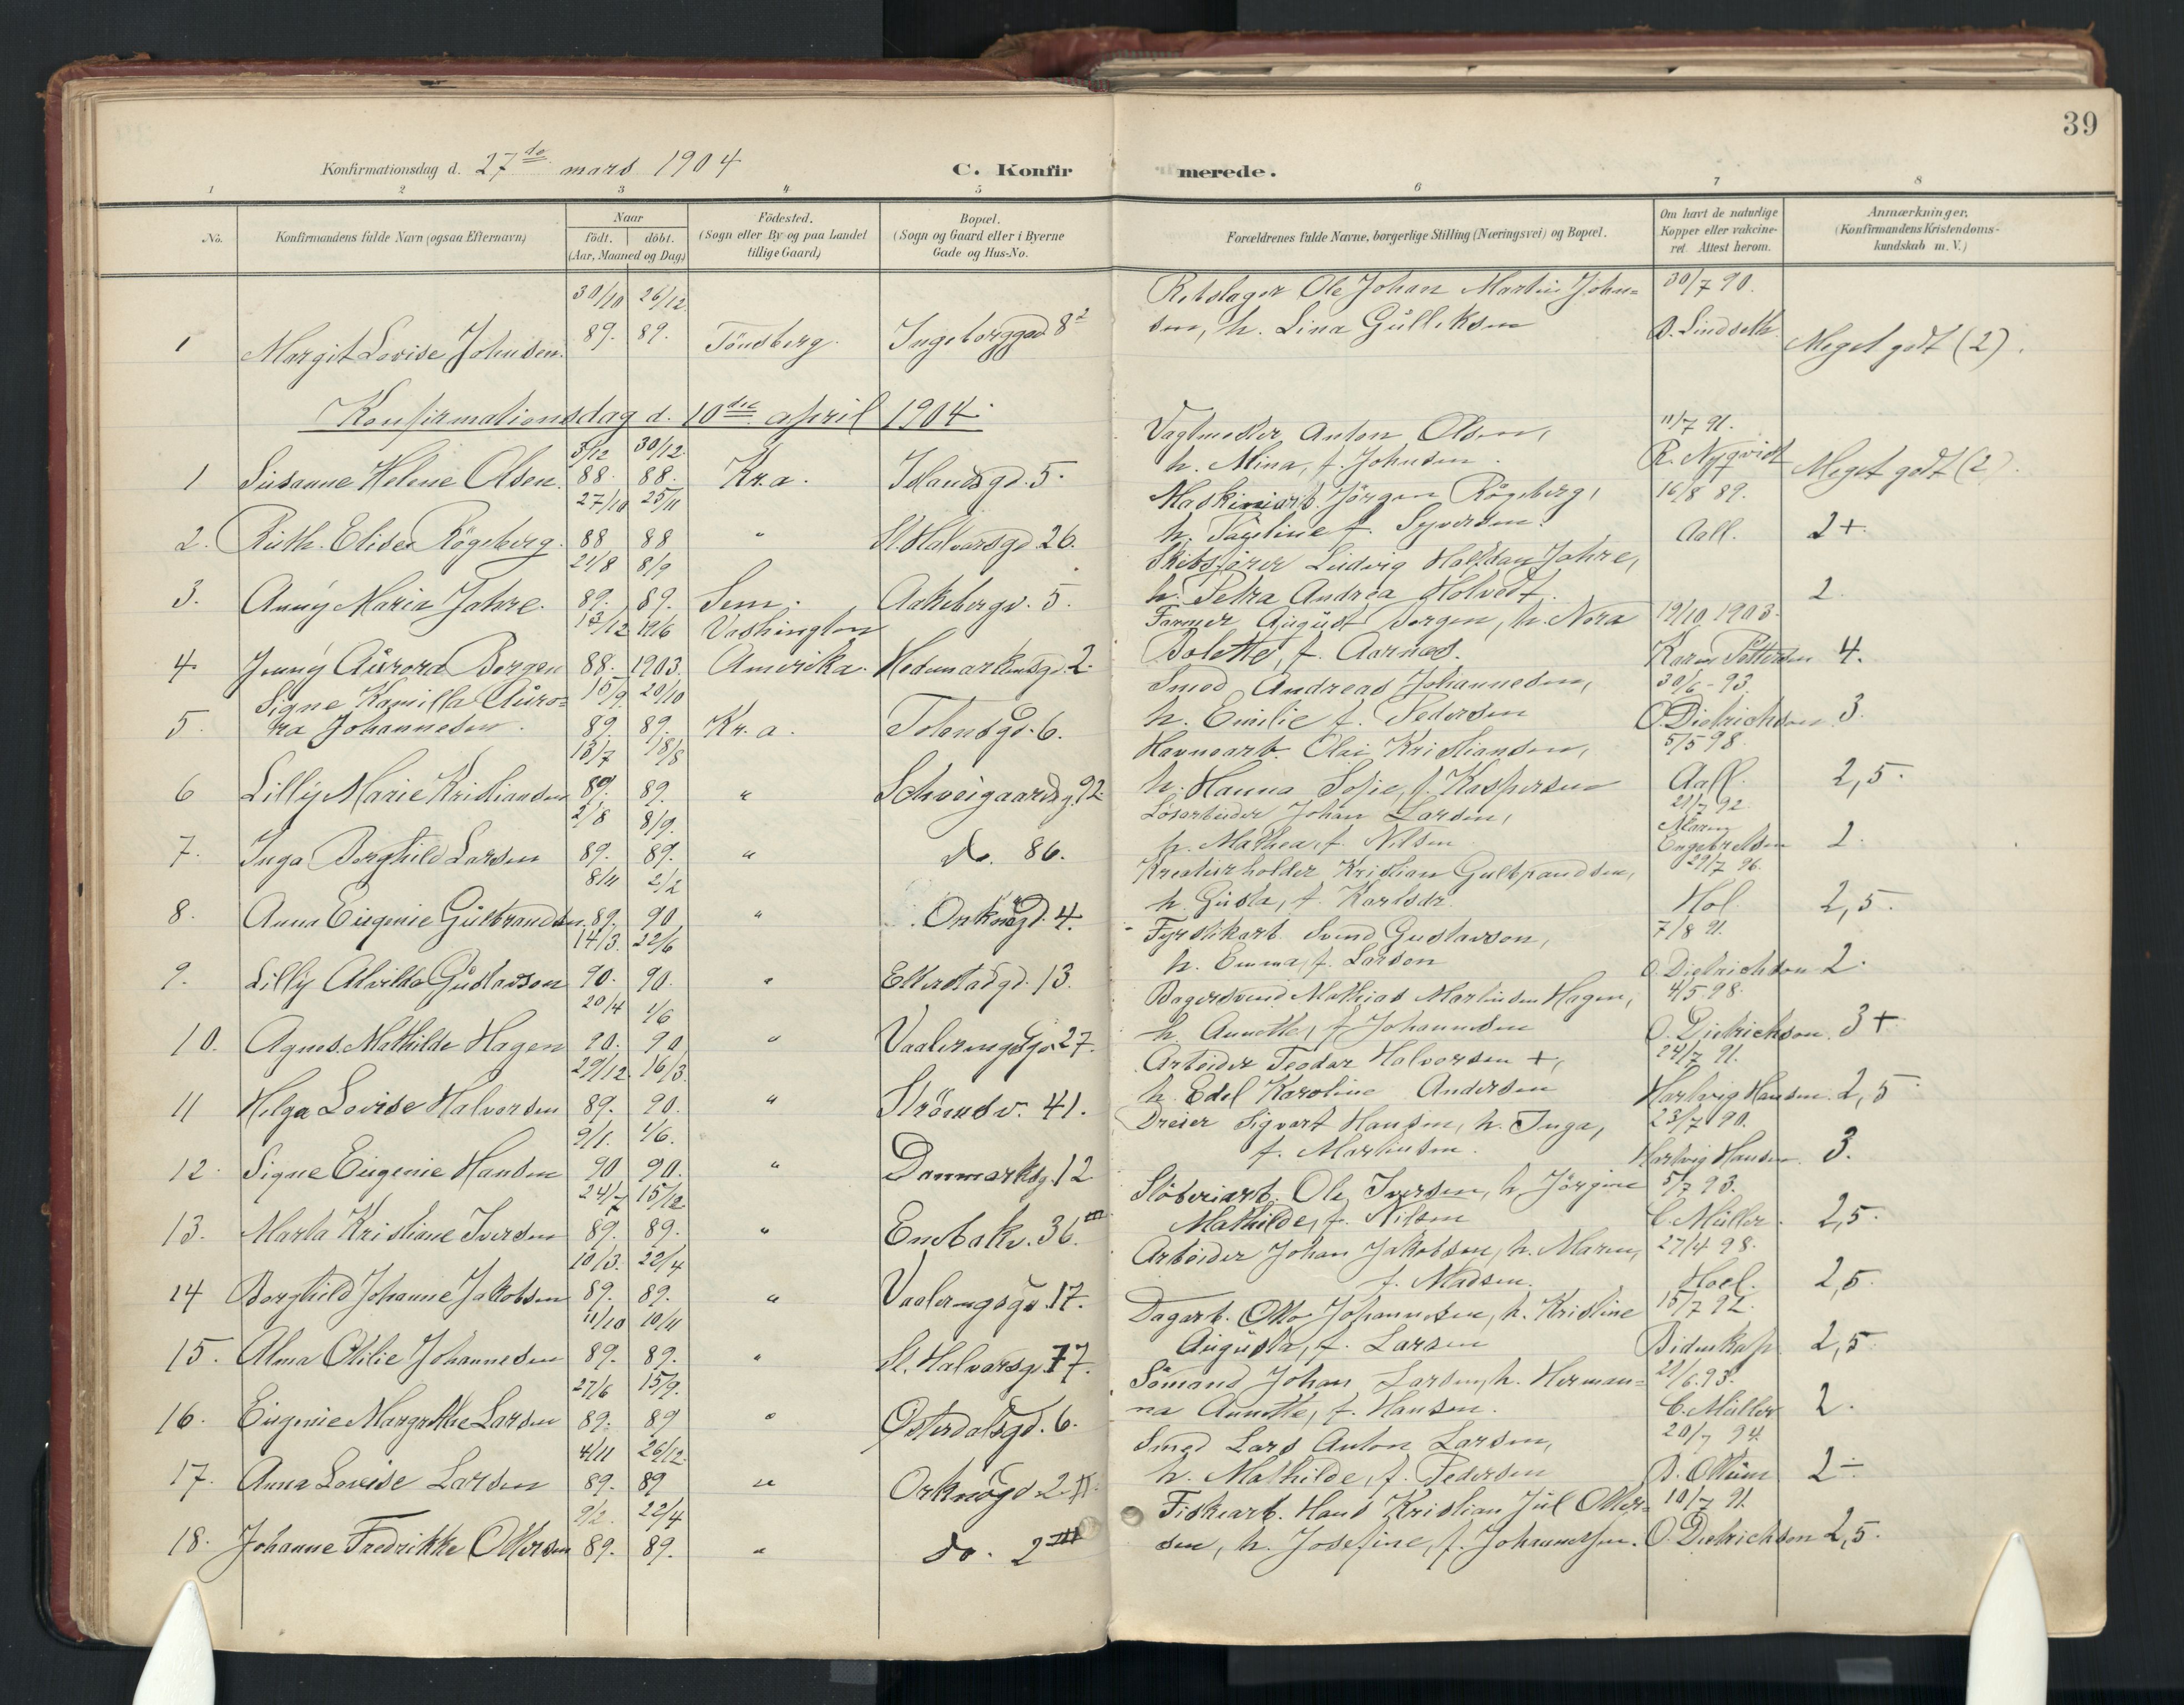 39
Konfirmationsdag d. 27de mars 1904
C. Konfirmerede.
1 2 3 4 5 6 7 8
No.
Konfirmandens fulde Navn (ogsaa Efternavn)
Naar
födt. döbt.
(Aar, Maaned og Dag)
Födested.
(Sogn eller By og paa Landet
tillige Gaard)
Bopæl.
(Sogn og Gaard eller i Byerne
Gade og Hus-No.
Forældrenes fulde Navne, borgerlige Stilling (Næringsvei) og Bopæl.
Om havt de naturlige
Kopper eller vakcine-
ret. Attest herom.
Anmærkninger.
(Konfirmandens Kristendoms-
kundskab m. V.)
30/10 26/12 Rebslager Ole Johan Martin John= 30/7 90.
1 Margit Lovise Johnsen. 89. 89. Tönsberg. Ingeborggad 8² sen, h. Lina Gulliksen B. Lindseth Meget godt (2).
Konfirmationsdag d. 10de april 1904.
5/12 30/12. Vagtmester Anton Olsen, 11/7 91.
1 Susanne Helene Olsen. 88. 88. Kr.a. Islandsgd. 5. h. Mina, f. Johnsen. R. Nyqvist Meget godt (2).
27/10 25/11 Maskinarb. Jörgen Rögeberg, 16/8 89.
2. Ruth Elise Rögeberg. 88 88 " St Halvardsgd. 26. h. f. Syversen. Aall. 2+
21/8 8/9 Skibsförer Ludvig Halfdan Jahre,
3. Anny Maria Jahre. 89. 89. Sem. Aakebergv. 5. h. Petra Andrea Holvedt. 2.
13/12 19/6 Vashington Farmer August Borgen, h. Nora 19/10 1903.
4 Jenny Aurora Borgen 88. 1903. Amerika. Hedemarkensgd. 2. Bolette, f. Aarnes. Karen Pettersen 4.
Signe Kamilla Auro= 15/9 20/10 Smed Andreas Johannesen, 30/6 - 93.
5. ra Johannesen. 89. 89. Kr.a. Totensgd. 6. h. Emilie f. Pedersen O. Dietrichson 3.
13/7 18/8 Havnearb. Olai Kristiansen, 5/5 98.
6 Lilly Marie Kristiansen 89. 89. " Schweigaardsg. 92 h. Hanna Sofie, f. Kaspersen Aall. 2,5.
2/8 8/9. Lösarbeider Johan Larsen, 21/7 92
7. Inga Borghild Larsen 89. 89. " do. 86. h. Mathea, f. Nilsen Maren Engebretsen 2.
8/11 2/2 Kreaturholder Kristian Gulbrandsen, 29/7 96.
8. Anna Eugenie Gulbrandsen. 89. 90 " Orknögd. 4. h. Gusta, f. Karlsdr. Hol 2,5.
14/3. 22/6 Fyrstikarb. Svend Gustavson, 7/8 91.
9. Lilly Alvilda Gustavson 90. 90. " Elverhöigd. 13. h. Emma, f. Larson O. Dietrichson 2.
20/4 1/6 Bagersvend Mathias Martinsen Hagen, 4/5 98.
10. Agnes Mathilde Hagen 90. 90 " Vaalerengsgd. 27. h. Annette, f. Johannesen O. Dietrichson. 3+
29/12. 16/3. Arbeider Teodor Halvorsen +, 24/7 91.
11 Helga Lovise Halvorsen 89. 90. " Strömsv. 41. h. Edel Karoline Andersen Hartvig Hansen. 2,5
9/1. 1/6. Dreier Sigvart Hansen, h. Inga, 23/7 90.
12. Signe Eugenie Hansen 90. 90. " Danmarksg. 12 f. Martinsen. Hartvig Hansen. 3.
24/7 15/12 Stöberiarb. Ole Iversen, h. Jörgine 5/7 93.
13. Marta Kristiane Iversen 89. 89. " Enebakv. 36.III Mathilde, f. Nilsen C. Müller. 2,5.
10/3. 22/4 Arbeider Johan Jakobsen, h. Maren, 27/4 98.
14 Borghild Johanne Jakobsen 89. 89. " Vaalerengsgd. 17. f. Madsen. Hoel. 2,5.
11/10 10/11 Dagarb. Otto Johannesen, h. Kristine 15/7 92.
15. Alma Otilie Johannesen 89. 89. " St. Halvarsg. 77. Augusta, f. Larsen Bidenkap 2,5.
27/6 15/9. Sömand Johan Larsen, h. Herman= 21/6. 93.
16. Eugenie Margrethe Larsen 89. 89 " Österdalsgd. 6. na Annette, f. Hansen. C. Müller 2.
4/11 26/12. Smed Lars Anton Larsen, 20/7 94.
17. Anna Lovise Larsen 89. 89 " Orknögd 2 II. h. Mathilde, f. Pedersen 2-
2/2. 22/4 Fiskearb. Hans Kristian Jul Otter= 10/7 91.
18. Johanne Fredrikke Ottersen 89. 89. " do. 2 III sen, h. Josefine, f. Johannessen. O. Dietrichson 2,5.